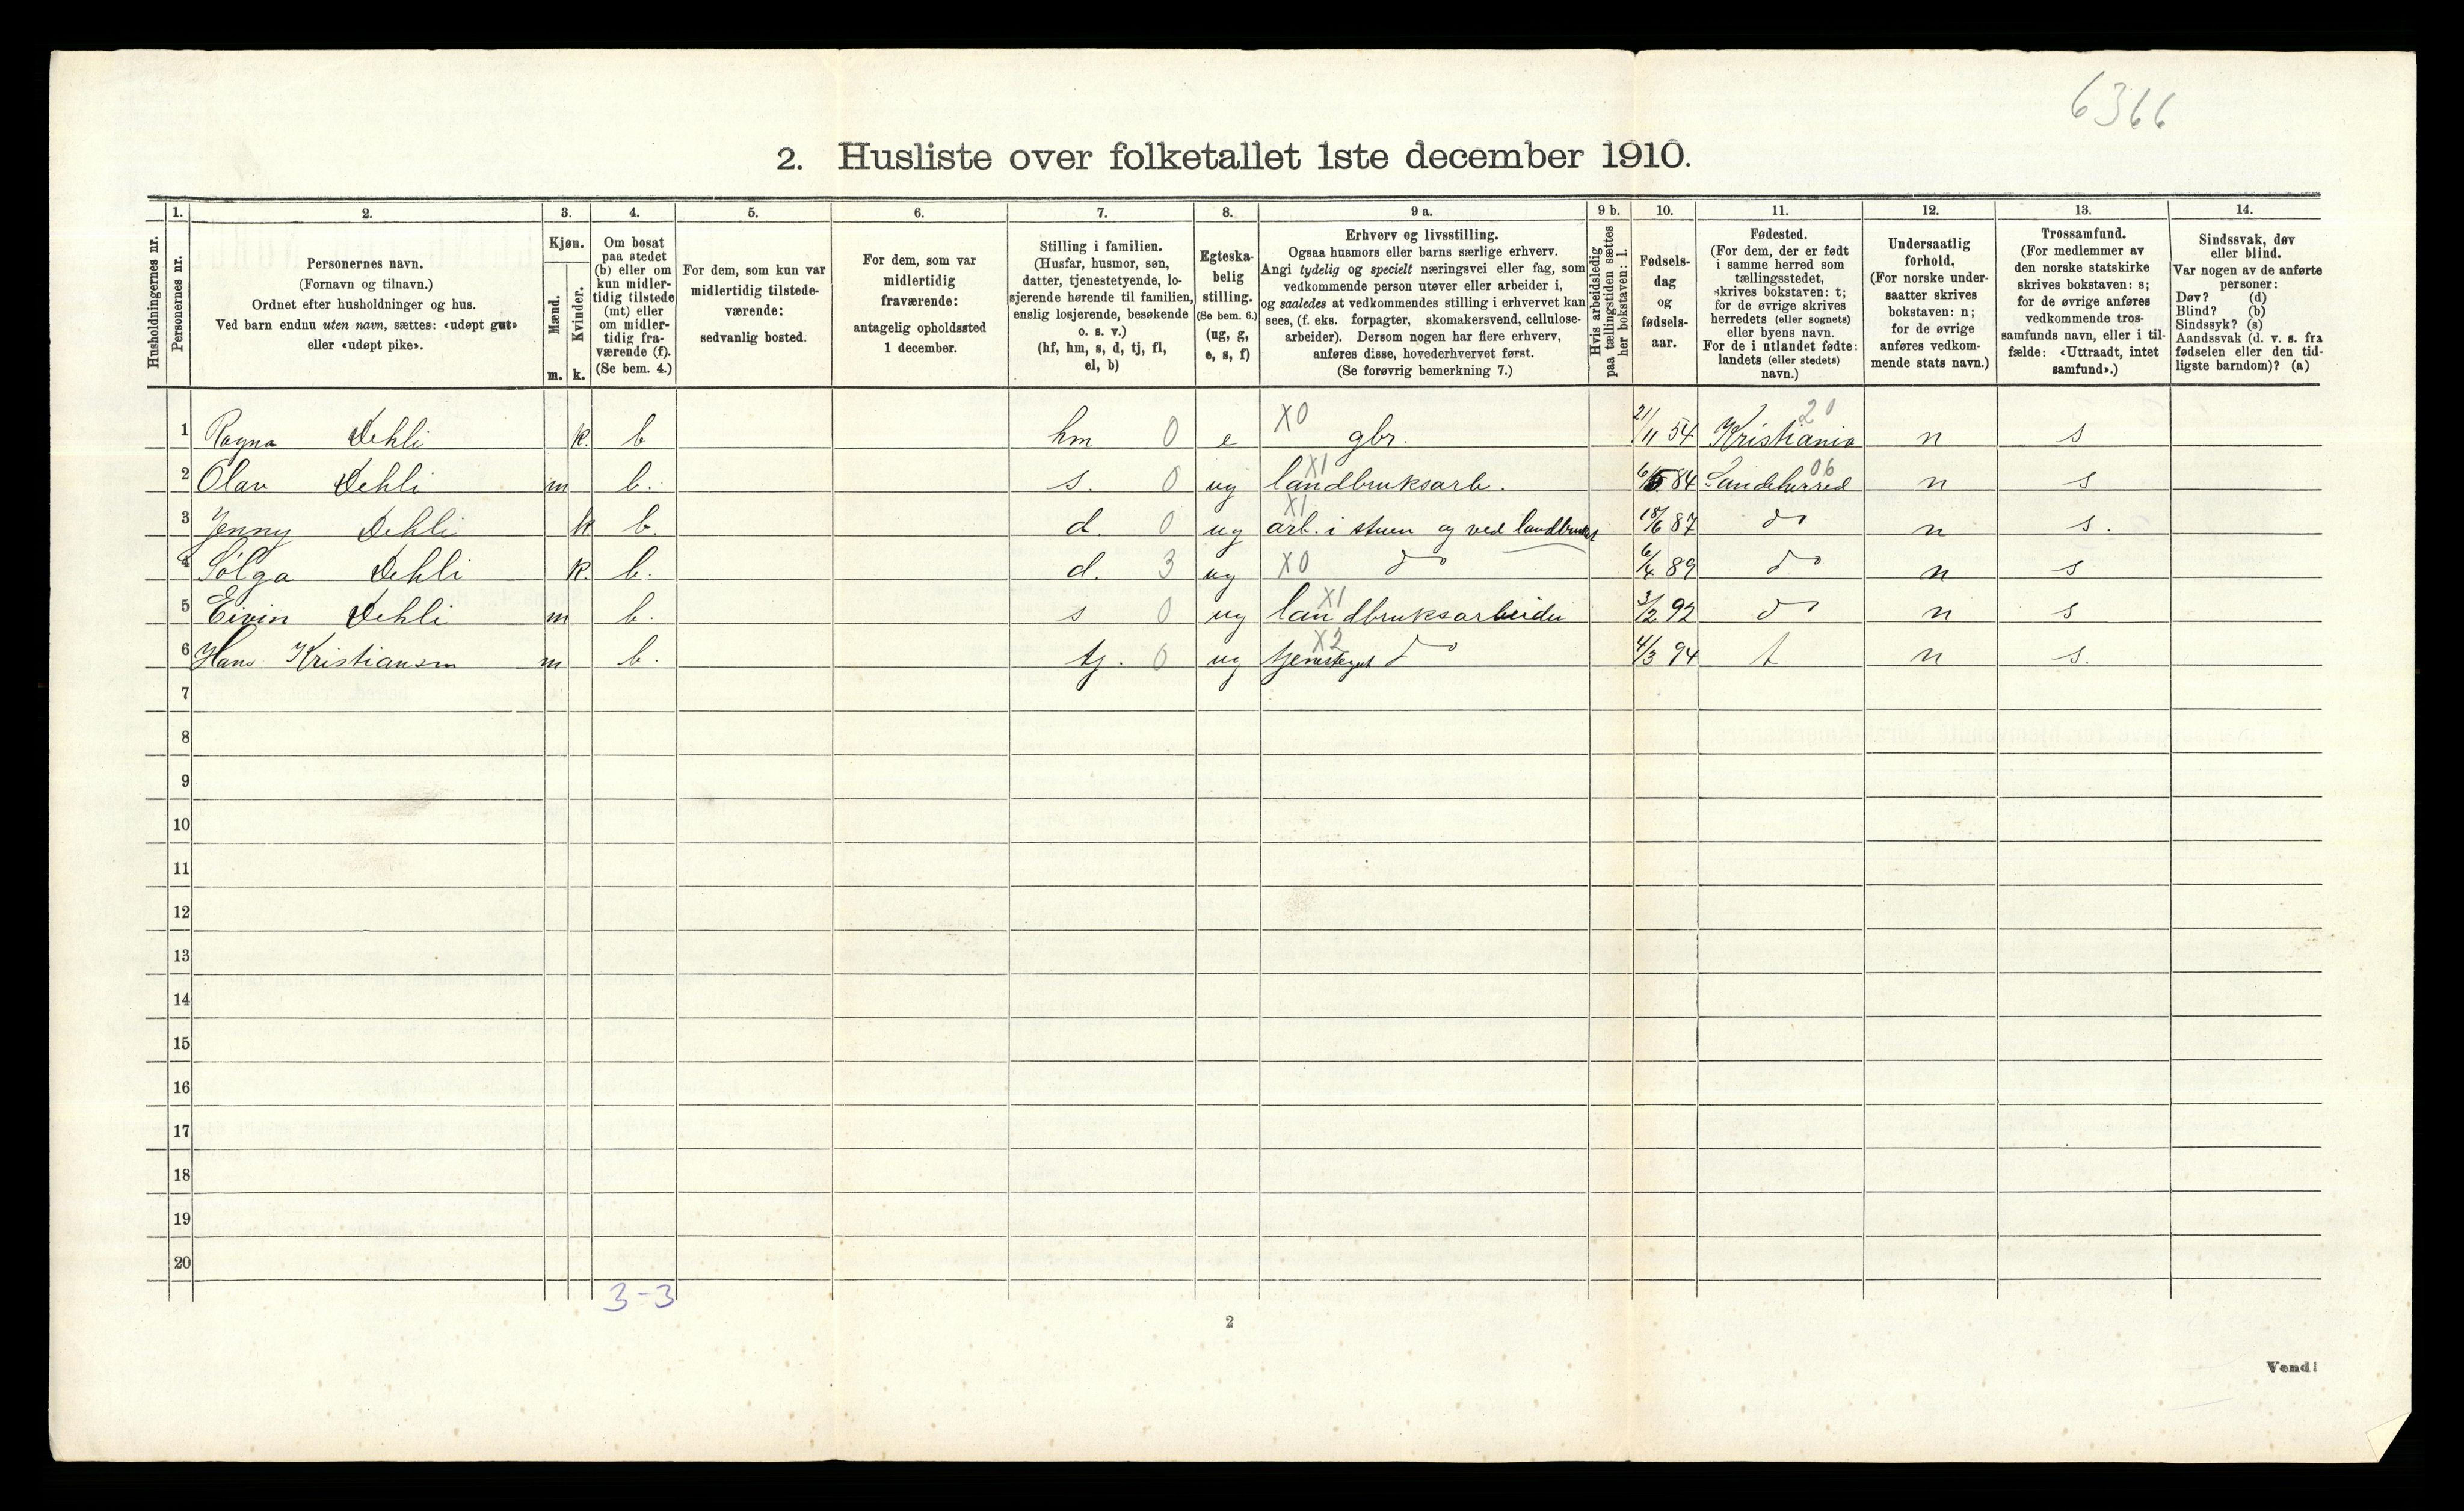 6366
2. Husliste over folketallet 1ste december 1910.
1. 2. 3. 4. 5. 6. 7. 8. 9 a. 9 b. 10. 11. 12. 13. 14.
Husholdningernes nr.
Personernes nr.
Personernes navn.
(Fornavn og tilnavn.)
Ordnet efter husholdninger og hus.
Ved barn endnu uten navn, sættes: «udøpt gut»
eller «udøpt pike».
Kjøn.
Mænd.
Kvinder.
m. k.
Om bosat
paa stedet
(b) eller om
kun midler-
tidig tilstede
(mt) eller
om midler-
tidig fra-
værende (f).
(Se bem. 4.)
For dem, som kun var
midlertidig tilstede-
værende:
sedvanlig bosted.
For dem, som var
midlertidig
fraværende:
antagelig opholdssted
1 december.
Stilling i familien.
(Husfar, husmor, søn,
datter, tjenestetyende, lo-
sjerende hørende til familien,
enslig losjerende, besøkende
o. s. v.)
(hf, hm, s, d, tj, fl,
el, b)
Egteska-
belig
stilling.
(Se bem. 6.)
(ug, g,
e, s, f)
Erhverv og livsstilling.
Ogsaa husmors eller barns særlige erhverv.
Angi tydelig og specielt næringsvei eller fag, som
vedkommende person utøver eller arbeider i,
og saaledes at vedkommendes stilling i erhvervet kan
sees, (f. eks. forpagter, skomakersvend, cellulose-
arbeider). Dersom nogen har flere erhverv,
anføres disse, hovederhvervet først.
(Se forøvrig bemerkning 7.)
Hvis arbeidsledig
paa tællingstiden sættes
her bokstaven: l.
Fødsels-
dag
og
fødsels-
aar.
Fødested.
(For dem, der er født
i samme herred som
tællingsstedet,
skrives bokstaven: t;
for de øvrige skrives
herredets (eller sognets)
eller byens navn.
For de i utlandet fødte:
landets (eller stedets)
navn.)
Undersaatlig
forhold.
(For norske under-
saatter skrives
bokstaven: n;
for de øvrige
anføres vedkom-
mende stats navn.)
Trossamfund.
(For medlemmer av
den norske statskirke
skrives bokstaven: s;
for de øvrige anføres
vedkommende tros-
samfunds navn, eller i til-
fælde: «Uttraadt, intet
samfund».)
Sindssvak, døv
eller blind.
Var nogen av de anførte
personer:
Døv? (d)
Blind? (b)
Sindssyk? (s)
Aandssvak (d. v. s. fra
fødselen eller den tid-
ligste barndom)? (a)
1 Ragna Dehli k. b hm 0 e X0 gbr. 21/11 54 Kristiania 20 n s
2 Olav Dehli m b. s. 0 ug X1 landbruksarb. 6/5 84 Sandeherred 06 n s
3 Jenny Dehli k b. d. 0 ug X1 arb. i stuen og ved landbruket 18/6 87 do n s.
4 Solga Dehli k. b. d. 3 ug X0 do 6/4 89 do n s
5 Eivin Dehli m b. s 0 ug X1 landbruksarbeider 3/2 92 do n s
6 Hans Kristiansen m b. tj. 0 ug X2 tjenestegut do 4/3 94 t n s.
7
8
9
10
11
12
13
14
15
16
17
18
19
20
3-3
2
Vend!